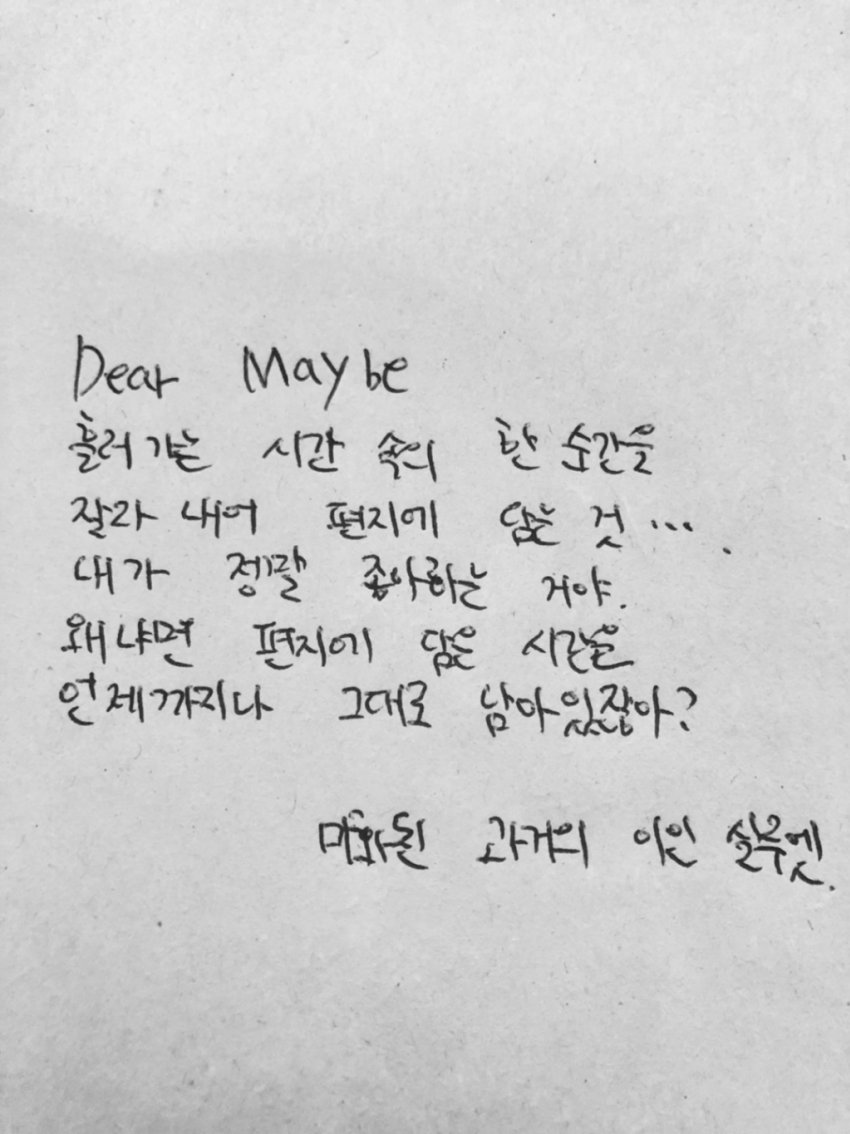 Dear Maybe
흘러가는 시간 속의 한 순간을
잘라 내어 편지에 담는 것....
내가 정말 좋아하는 거야.
왜냐면 편지에 담은 시간은
언제까지나 그대로 남아있잖아?
미화된 과거의 이인 실루엣.